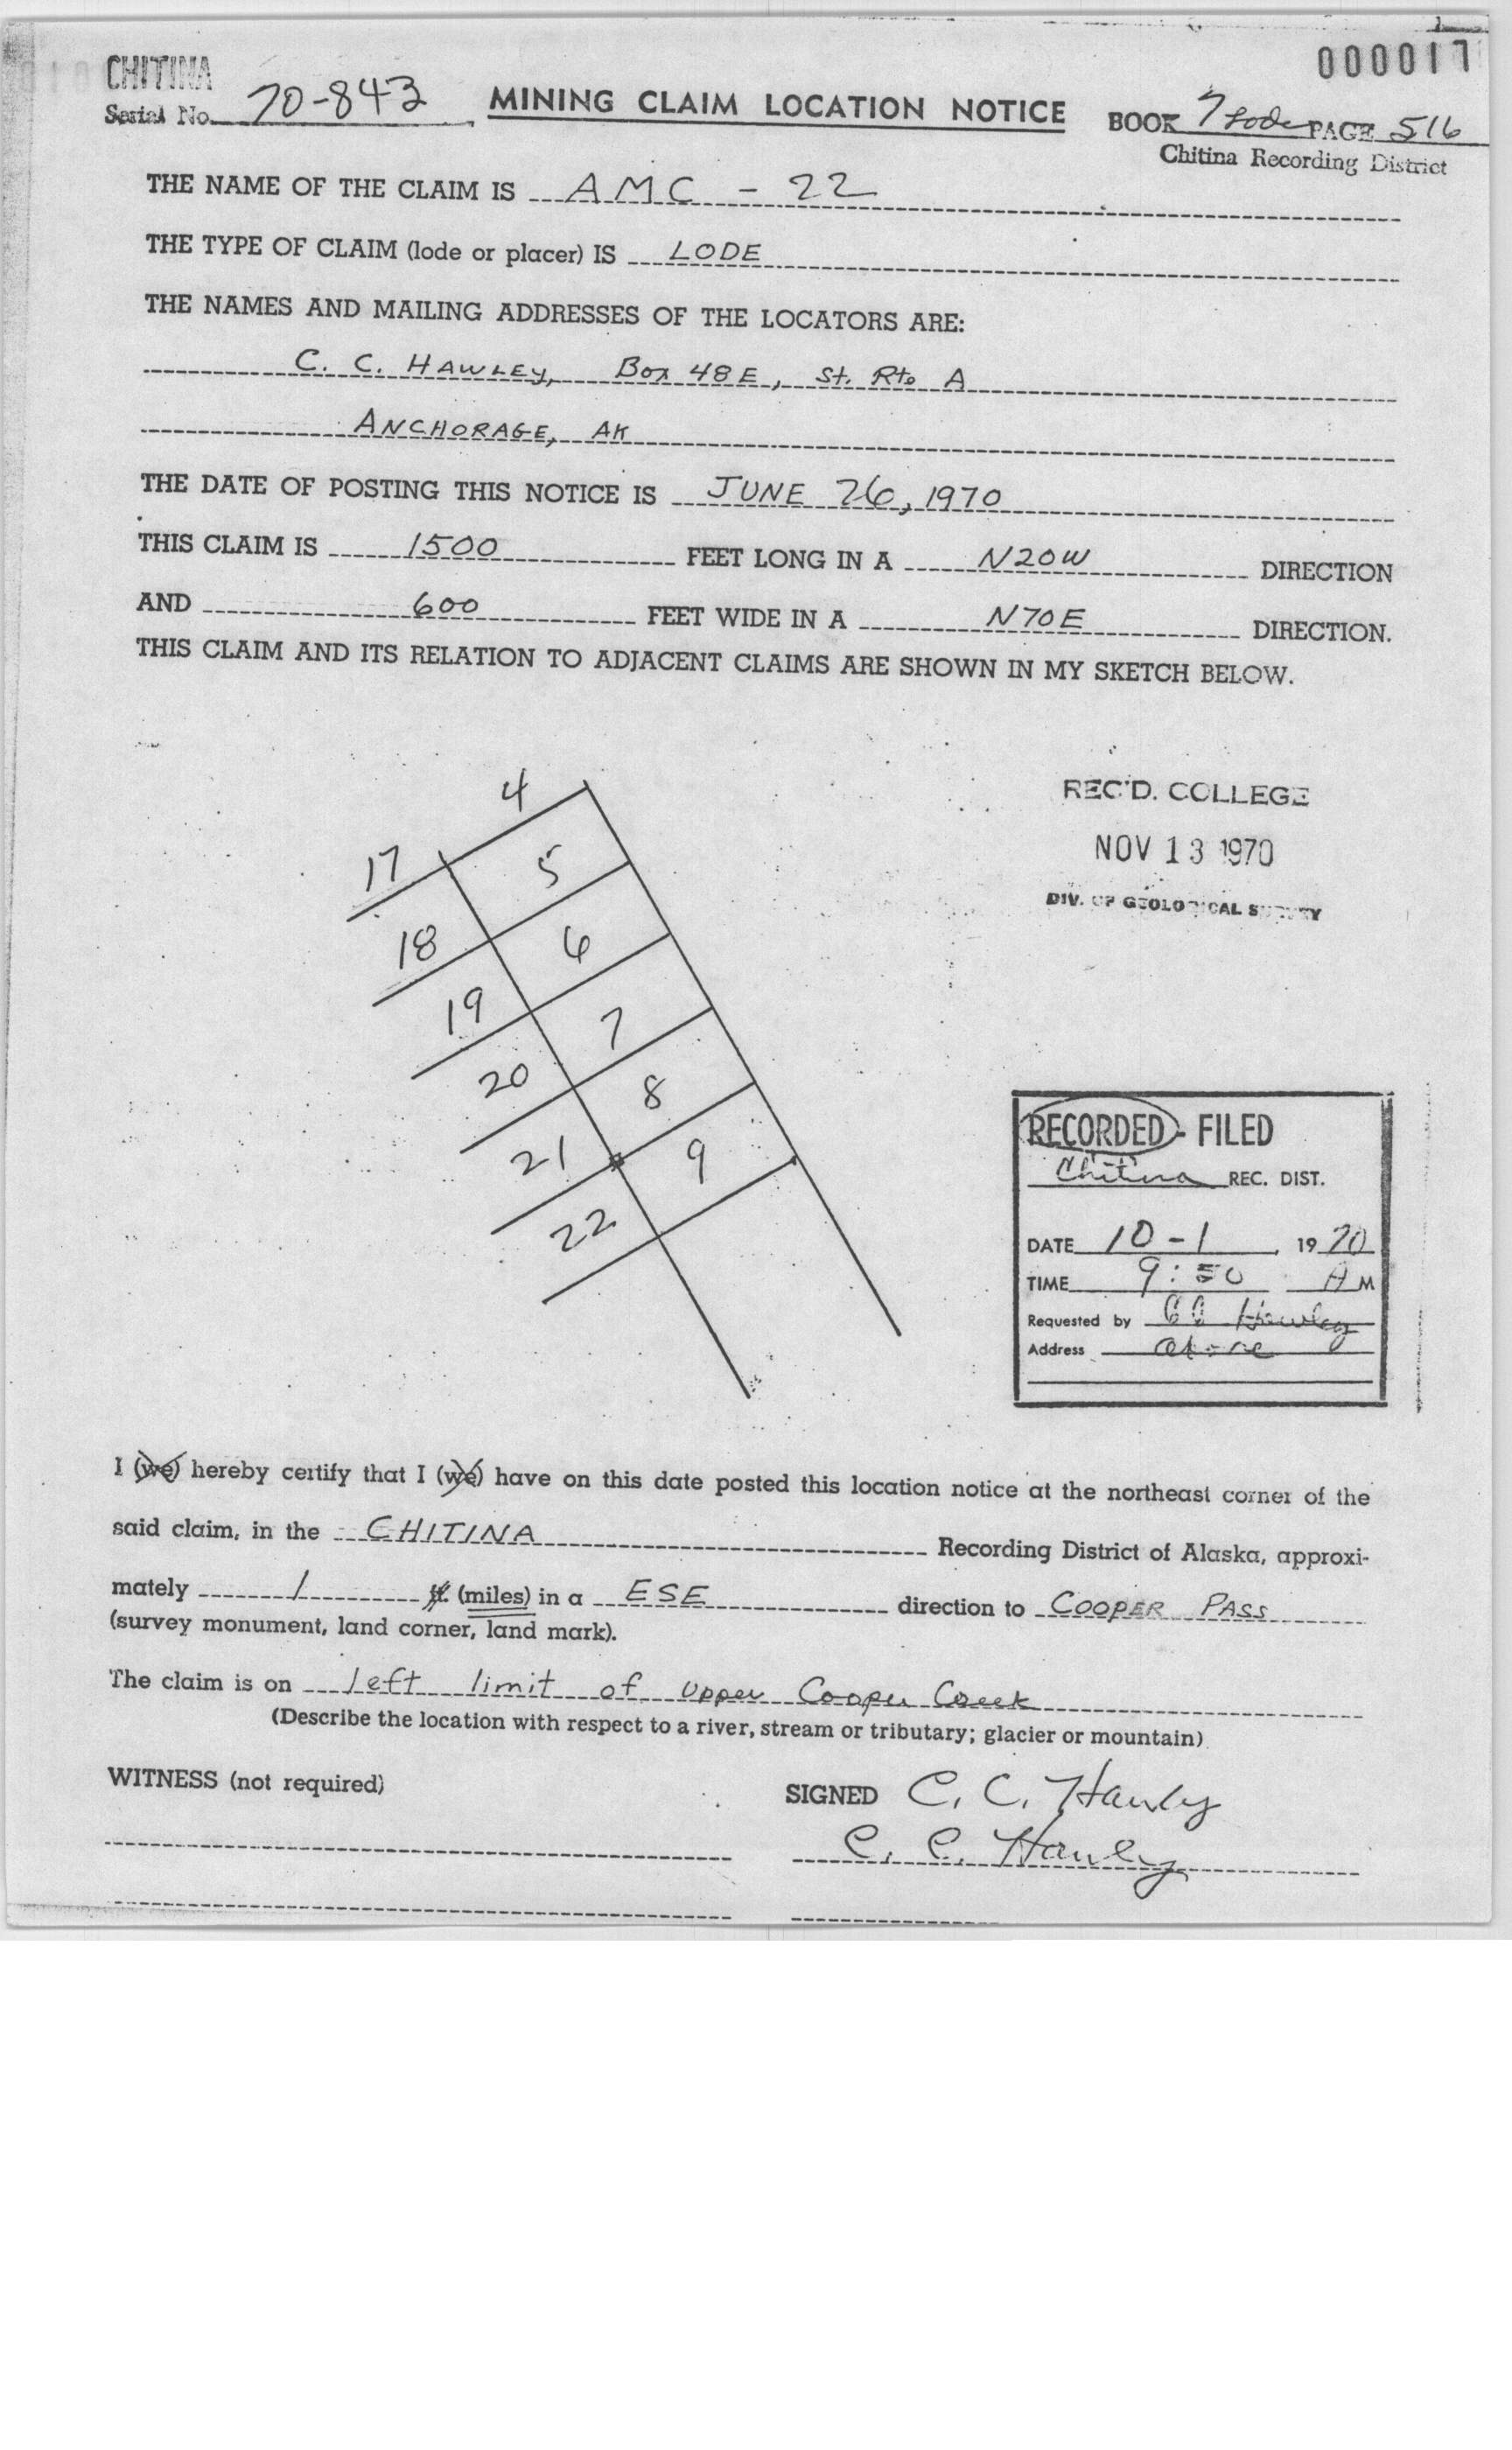 000017
CHITINA
Serial No. 70-843 MINING CLAIM LOCATION NOTICE BOOK 7 Lode PAGE 516
Chitina Recording District
THE NAME OF THE CLAIM IS AMC - 22
THE TYPE OF CLAIM (lode or placer) IS LODE
THE NAMES AND MAILING ADDRESSES OF THE LOCATORS ARE:
C. C. HAWLEY, Box 48E, St. Rte A
ANCHORAGE, AK
THE DATE OF POSTING THIS NOTICE IS JUNE 26, 1970
THIS CLAIM IS 1500 FEET LONG IN A N20W DIRECTION
AND 600 FEET WIDE IN A N70E DIRECTION.
THIS CLAIM AND ITS RELATION TO ADJACENT CLAIMS ARE SHOWN IN MY SKETCH BELOW.
4
17 5
18 6
19 7
20 8
21 9
22
REC'D. COLLEGE
NOV 13 1970
DIV. OF GEOLOGICAL SURVEY
RECORDED - FILED
Chitina REC. DIST.
DATE 10-1 1970
TIME 9:50 AM
Requested by CC Hawley
Address above
I (we) hereby certify that I (we) have on this date posted this location notice at the northeast corner of the
said claim, in the CHITINA Recording District of Alaska, approxi-
mately 1 ft. (miles) in a ESE direction to COOPER PASS
(survey monument, land corner, land mark).
The claim is on left limit of upper Cooper Creek
(Describe the location with respect to a river, stream or tributary; glacier or mountain)
WITNESS (not required) SIGNED C. C. Hawley
C. C. Hawley